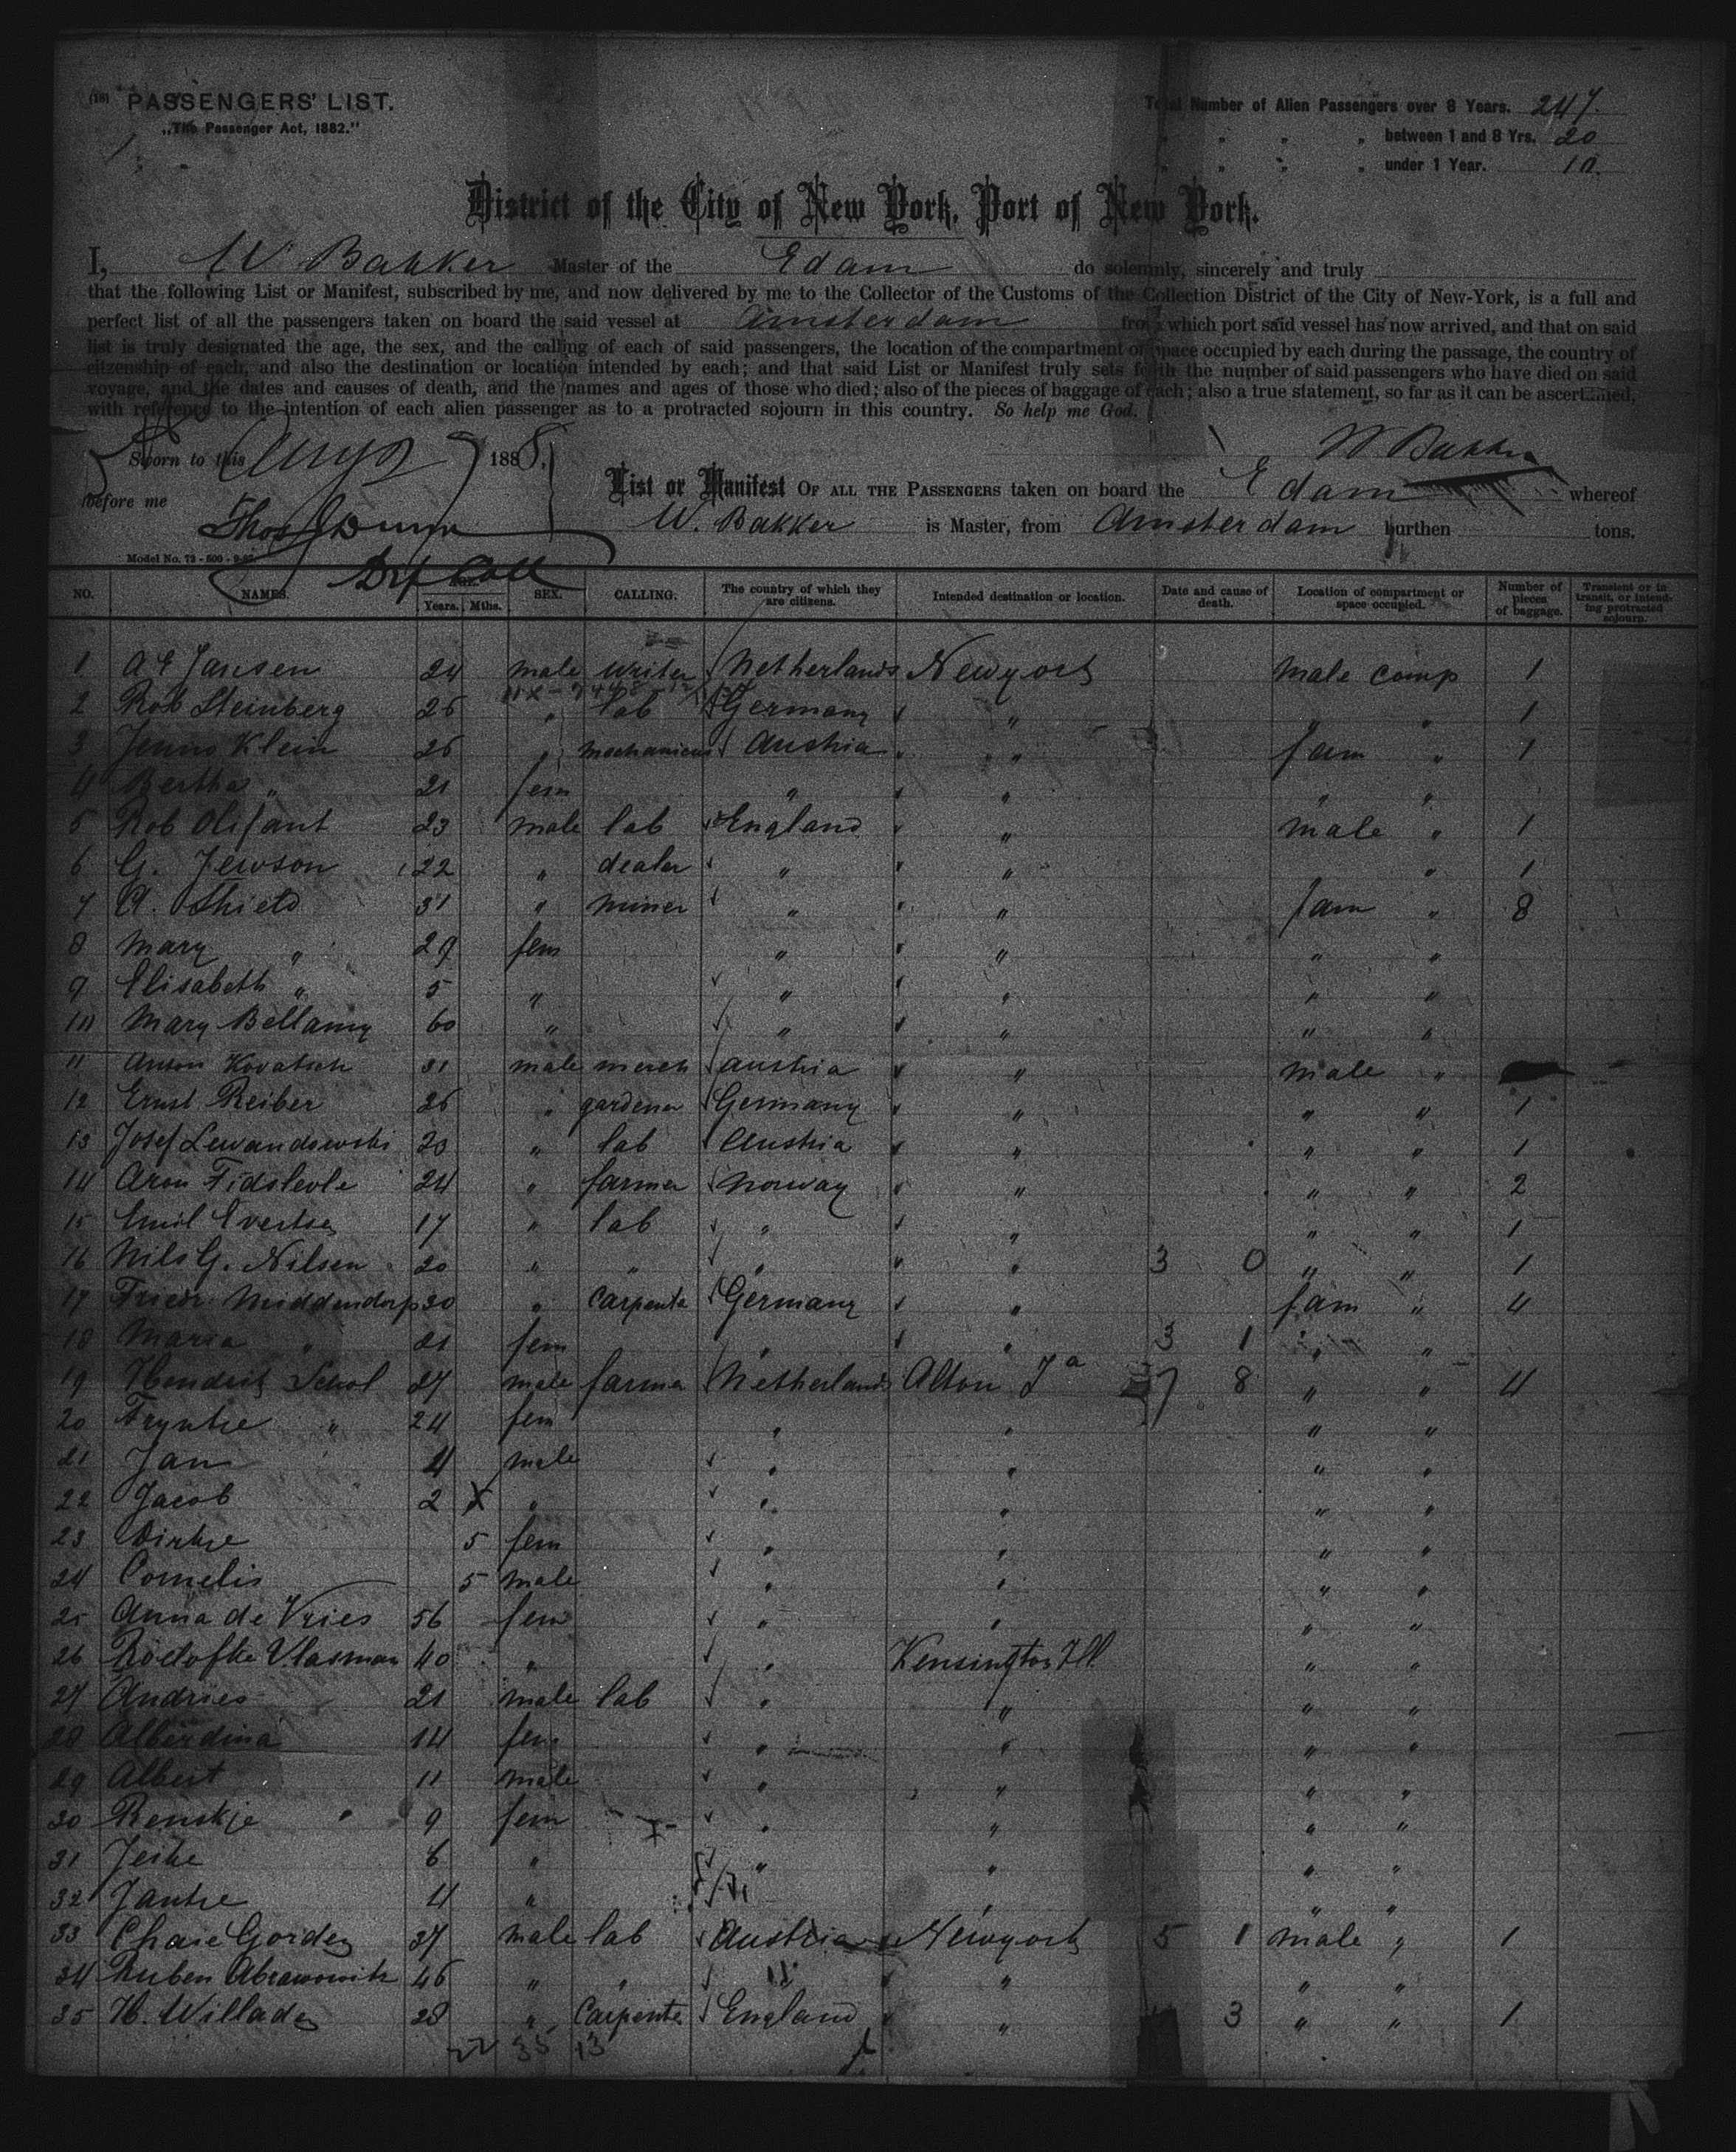 (18) PASSENGERS' LIST.
„The Passenger Act, 1882."
Total Number of Alien Passengers over 8 Years. 247.
„ „ „ „ between 1 and 8 Yrs. 20
„ „ „ „ under 1 Year. 10.
District of the City of New York, Port of New York.
I, W Bakker Master of the Edam do solemnly, sincerely and truly
that the following List or Manifest, subscribed by me, and now delivered by me to the Collector of the Customs of the Collection District of the City of New-York, is a full and
perfect list of all the passengers taken on board the said vessel at Amsterdam from which port said vessel has now arrived, and that on said
list is truly designated the age, the sex, and the calling of each of said passengers, the location of the compartment or space occupied by each during the passage, the country of
citzenship of each, and also the destination or location intended by each; and that said List or Manifest truly sets forth the number of said passengers who have died on said
voyage, and the dates and causes of death, and the names and ages of those who died; also of the pieces of baggage of each; also a true statement, so far as it can be ascertained,
with reference to the intention of each alien passenger as to a protracted sojourn in this country. So help me God.
W Bakker
Sworn to this Aug 1888.
before me
List or Manifest OF ALL THE PASSENGERS taken on board the Edam whereof
W. Bakker is Master, from Amsterdam burthen tons.
Model No. 73 - 500 -
NO. NAMES. AGE. Years. Mths. SEX. CALLING. The country of which they are citizens. Intended destination or location. Date and cause of death. Location of compartment or space occupied. Number of pieces of baggage. Transient or in transit, or intending protracted sojourn.
1 A E Jansen 24 male writer Netherlands Newyork male comp 1
2 Rob Steinberg 26 „ lab Germany „ „ „ 1
3 Klein 26 „ mechanicus Austria „ fam „ 1
4 Bertha „ 21 fem „ „ „ „
5 Rob Olifant 23 male lab England „ male „ 1
6 G. Jewson 22 „ dealer „ „ „ 1
7 A. Shield 31 „ miner „ „ fam „ 8
8 Mary „ 29 fem „ „ „ „
9 Elisabeth „ 5 „ „ „ „ „
10 Mary Bellamy 60 „ „ „ „ „
11 Anton Kovatsch 31 male merch Austria „ male „
12 Ernst Reiber 26 „ gardener Germany „ „ „ 1
13 Josef Lewandowski 20 „ lab Austria „ „ „ 1
14 Aron 24 „ farmer Norway „ „ „ 2
15 Emil Evertsen 17 „ lab „ „ „ „ 1
16 Nils G. Nilsen 20 „ „ „ „ 3 0 „ „ 1
17 Friedr Middendorp 30 „ Carpenter Germany „ fam „ 4
18 Maria „ 21 fem „ „ 3 1 „ „
19 Hendrik Schol 27 male farmer Netherlands Alton Ia 7 8 „ „ 4
20 Tryntje „ 24 fem „ „ „ „
21 Jan 4 male „ „ „ „
22 Jacob 2 X „ „ „ „ „
23 Dirkje 5 fem „ „ „ „
24 Cornelis 5 male „ „ „ „
25 Anna de Vries 56 fem „ „ „ „
26 Roelofke Vlasman 40 „ „ Kensington Ill. „ „
27 Andries 21 male lab „ „ „ „
28 Alberdina 14 fem „ „ „ „
29 Albert 11 male „ „ „ „
30 Renskje „ 9 fem „ „ „ „
31 Jeike 6 „ „ „ „ „
32 Jantje 4 „ „ „ „
33 Chaie Gorden 37 male lab Austria Newyork 5 1 male „ 1
34 Ruben Abramowitz 46 „ „ „ „ „ „
35 H. Willaden 28 „ Carpenter England „ 3 „ „ 1
22 35 13